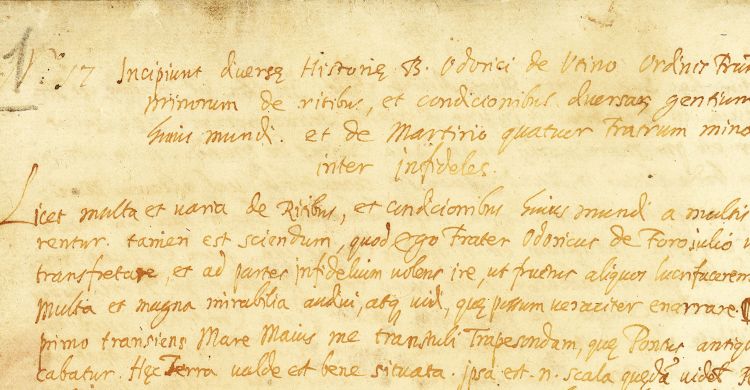 17 Incipiunt diversę Historię B. Odorici de Utino Ordinis Frat
minorum de ritibus, et condicionibus diversar gentium
huius mundi. et de Martirio quatuor Fratrum mino
inter infideles.
Licet multa et varia de Ritibus, et condicionibus huius mundi a multis
rentur. tamen est sciendum, quod ego Frater Odoricus de Forojulio
transfretare, et ad partes infidelium volens ire, ut fructus aliquos lucrifacerem
Multa et magna mirabilia audivi, atq vidi, quę possum veraciter enarrare.
primo transiens Mare Maius me transtuli Trapesondam, quę Pontus antiqu
cabatur. Hęc Terra valde et bene situata. ipsa est .n. scala quędā videt